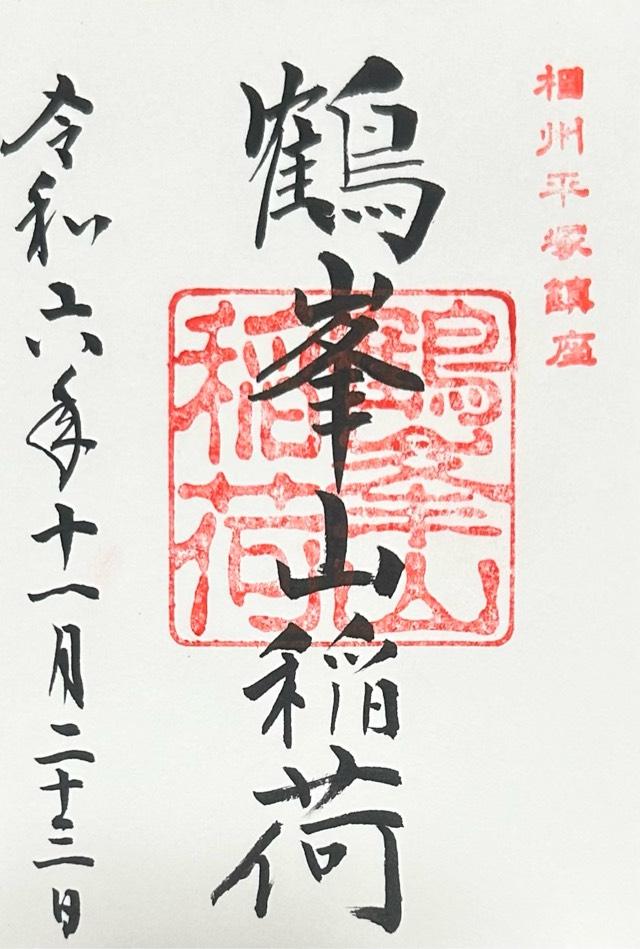 相州平塚鎮座
鶴峯山稲荷
鶴峯山
稲荷
令和六年十一月二十三日